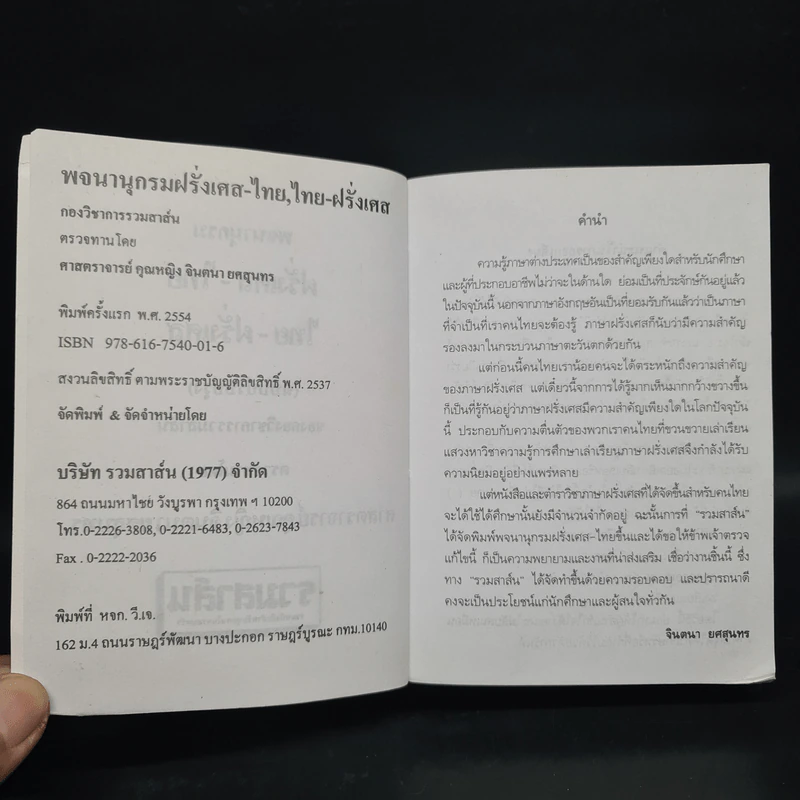 พจนานุกรมฝรั่งเศส-ไทย,ไทย-ฝรั่งเศส
กองวิชาการรวมสาส์น
ตรวจทานโดย
ศาสตราจารย์ คุณหญิง จินตนา ยศสุนทร
พิมพ์ครั้งแรก พ.ศ. 2554
ISBN 978-616-7540-01-6
สงวนลิขสิทธิ์ ตามพระราชบัญญัติลิขสิทธิ์ พ.ศ. 2537
จัดพิมพ์ & จัดจำหน่ายโดย
บริษัท รวมสาส์น (1977) จำกัด
864 ถนนมหาไชย วังบูรพา กรุงเทพ ฯ 10200
โทร.0-2226-3808, 0-2221-6483, 0-2623-7843
Fax . 0-2222-2036
พิมพ์ที่ หจก. วี.เจ.
162 ม.4 ถนนราษฎร์พัฒนา บางปะกอก ราษฎร์บูรณะ กทม.10140
คำนำ
ความรู้ภาษาต่างประเทศเป็นของสำคัญเพียงใดสำหรับนักศึกษา
และผู้ที่ประกอบอาชีพไม่ว่าจะในด้านใด ย่อมเป็นที่ประจักษ์กันอยู่แล้ว
ในปัจจุบันนี้ นอกจากภาษาอังกฤษอันเป็นที่ยอมรับกันแล้วว่าเป็นภาษา
ที่จำเป็นที่เราคนไทยจะต้องรู้ ภาษาฝรั่งเศสก็นับว่ามีความสำคัญ
รองลงมาในกระบวนภาษาตะวันตกด้วยกัน
แต่ก่อนนี้คนไทยเราน้อยคนจะได้ตระหนักถึงความสำคัญ
ของภาษาฝรั่งเศส แต่เดี๋ยวนี้จากการได้รู้มากเห็นมากกว้างขวางขึ้น
ก็เป็นที่รู้กันอยู่ว่าภาษาฝรั่งเศสมีความสำคัญเพียงใดในโลกปัจจุบัน
นี้ ประกอบกับความตื่นตัวของพวกเราคนไทยที่ขวนขวายเล่าเรียน
แสวงหาวิชาความรู้การศึกษาเล่าเรียนภาษาฝรั่งเศสจึงกำลังได้รับ
ความนิยมอยู่อย่างแพร่หลาย
แต่หนังสือและตำราวิชาภาษาฝรั่งเศสที่ได้จัดขึ้นสำหรับคนไทย
จะได้ใช้ได้ศึกษานั้นยังมีจำนวนจำกัดอยู่ ฉะนั้นการที่ "รวมสาส์น"
ได้จัดพิมพ์พจนานุกรมฝรั่งเศส-ไทยขึ้นและได้ขอให้ข้าพเจ้าตรวจ
แก้ไขนี้ ก็เป็นความพยายามและงานที่น่าส่งเสริม เชื่อว่างานชิ้นนี้ ซึ่ง
ทาง "รวมสาส์น" ได้จัดทำขึ้นด้วยความรอบคอบ และปรารถนาดี
คงจะเป็นประโยชน์แก่นักศึกษาและผู้สนใจทั่วกัน
จินตนา ยศสุนทร